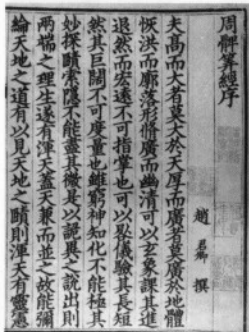 周髀算經序
趙君卿撰
夫高而大者莫大於天厚而廣者莫廣於地體
恢洪而廓落形脩廣而幽清可以玄象課其進
退然而宏遠不可指掌也可以晷儀驗其長短
然其巨闊不可度量也雖窮神知化不能極其
妙探賾索隱不能盡其微是以詭異之說出則
兩端之理生遂有渾天蓋天兼而並之故能彌
綸天地之道有以見天地之賾則渾天有靈憲